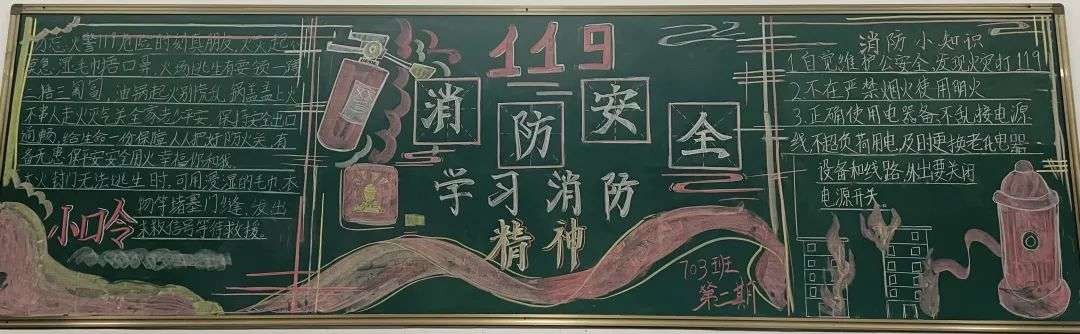 勿忘火警119危险时刻真朋友火灾起
莫急湿毛巾捂口鼻火场逃生有要诀一蹲
二捂三匍匐油锅起火别慌乱锅盖盖上火
不事人走火灾与关全家老小平安保持安全出口
畅顺给生命一份保障人人把好防火关有
备无患保平安安全用火幸福你和我
大火封门无法逃生时可用浸湿的毛巾衣
物件堵塞门缝,发出
求救信号等待救援
小口令
119
消防安全
学习消防
精神
703班
第二期
消防小知识
1.自觉维护公安全,发现火灾打119
2.不在严禁烟火使用明火
3.正确使用电器备,不乱接电源
线不超负荷用电,及时更换老化电器
设备和线路,外出要关闭
电源开关。